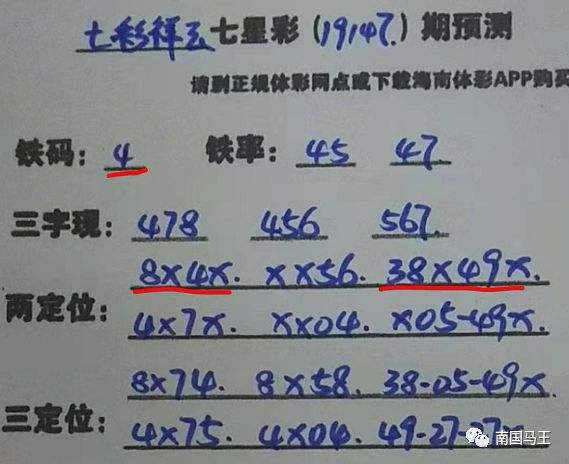 七彩祥云七星彩(19147.)期预测
请到正规体彩网点或下载海南体彩APP购买
铁码: 4 铁率: 45 47
三字现: 478 456 567.
8X4X. XX56. 38X49X.
两定位:
4X7X. XX04. X05-49X.
8X74. 8X58. 38-05-49X
三定位:
4X75. 4X04. 49-27-27X
南国马王